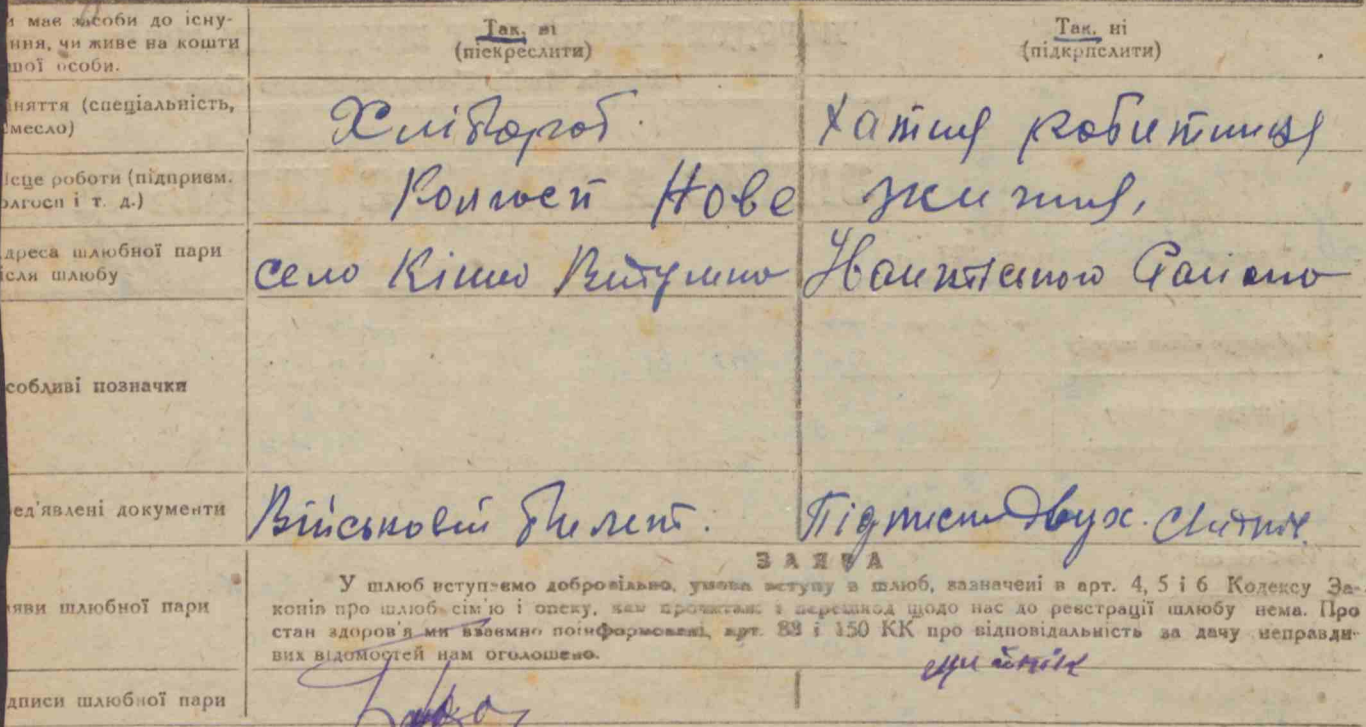 и має засоби до існу-
ння, чи живе на кошти
шої особи.
Так, ні
(підкреслити)
Так, ні
(підкрпслити)
няття (спеціальність,
емесло)
Хлібороб.
Хатня робитниця
ісце роботи (підприєм.
олгосп і т. д.)
Колгосп Нове життя,
дреса шлюбної пари
ісля шлюбу
село
собливі позначки
ед'явлені документи
Військовий билет.
Підписи двух
ЗАЯВА
яви шлюбної пари
У шлюб вступаємо добровільно, умова вступу в шлюб, зазначені в арт. 4, 5 і 6 Кодексу За-
конів про шлюб сім'ю і опеку, нам прочитані і перешкод щодо нас до реєстрації шлюбу нема. Про
стан здоров'я ми взаємно поінформовані, арт. 88 і 150 КК про відповідальність за дачу неправди-
вих відомостей нам оголошено.
дписи шлюбної пари